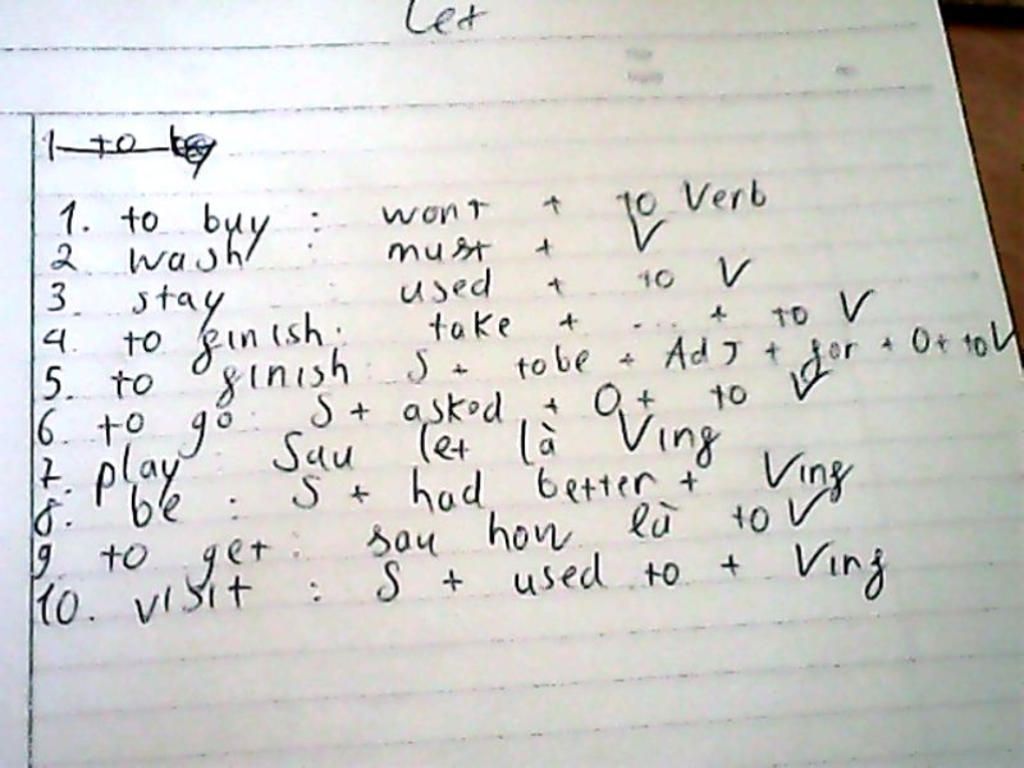 Let
1 to
1. to buy : want + to Verb
2 wash : must + V
3. stay : used + to V
4. to finish: take + ... + to V
5. to finish: S + tobe + AdJ + for + O + to V
6. to go: S + asked + O + to V
7. play : Sau let là Ving
8. be : S + had better + Ving
9 to get : sau how là to V
10. visit : S + used to + Ving